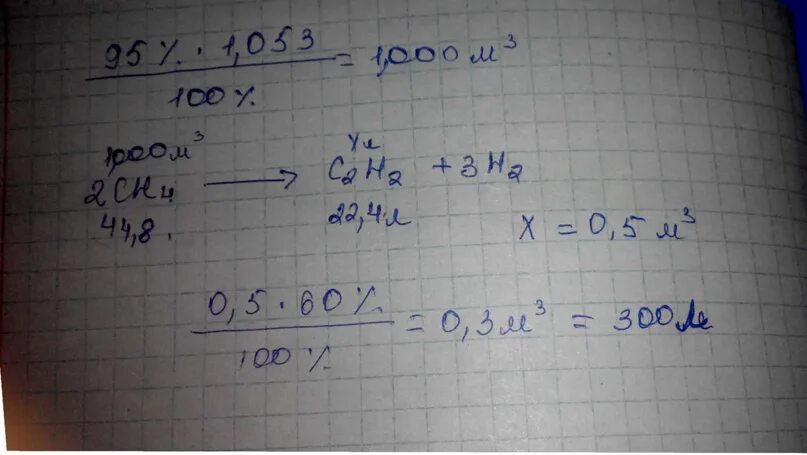 95 % · 1,053 / 100 % = 1,000 м³
1,000 м³ x л
2CH₄ → C₂H₂ + 3H₂
44,8. 22,4 л x = 0,5 м³
0,5 · 60 % / 100 % = 0,3 м³ = 300 л